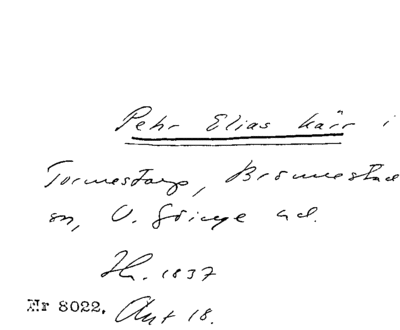 Pehr Elias Kärr i
Tormestorp, Brönnestad
sn, V. Göinge hd.
Jh. 1837
Nr 8022. Ant 18.